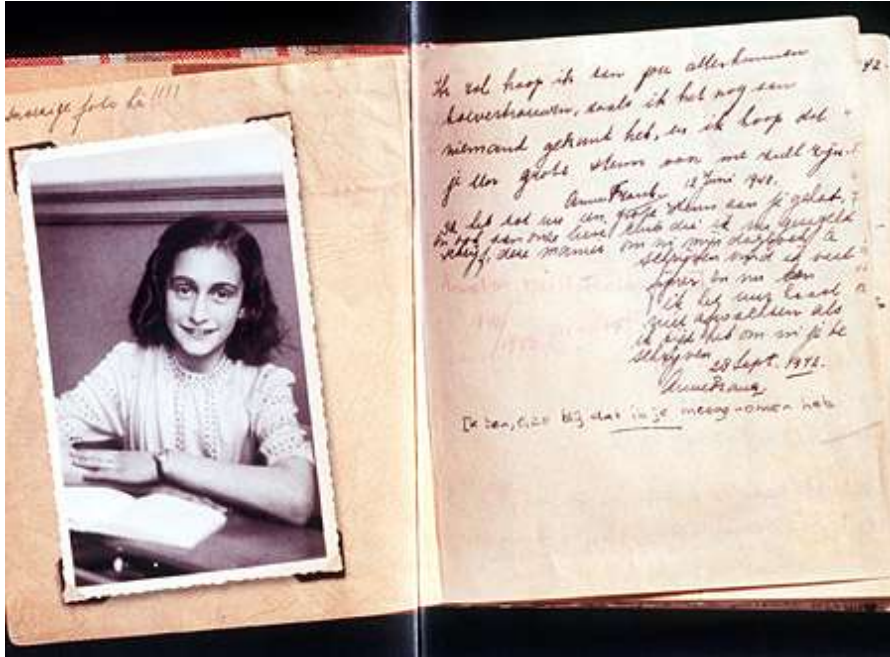 Snoezige foto hè!!!!
Ik zal hoop ik aan jou alles kunnen
toevertrouwen, zoals ik het nog aan
niemand gekund heb, en ik hoop dat
je een grote steun van me zult zijn.
Anne Frank. 12 Juni 1942.
Ik heb tot nu een grote steun aan je gehad,
en ook aan onze lieve club die ik nu geregeld
schrijf, deze manier om in mijn dagboek te
schrijven vind ik veel
fijner en nu kan
ik het uur haast
niet afwachten als
ik tijd heb om in je te
schrijven.
28 Sept. 1942.
Anne Frank.
Ik ben, o, zo blij dat ik je meegenomen heb
42.